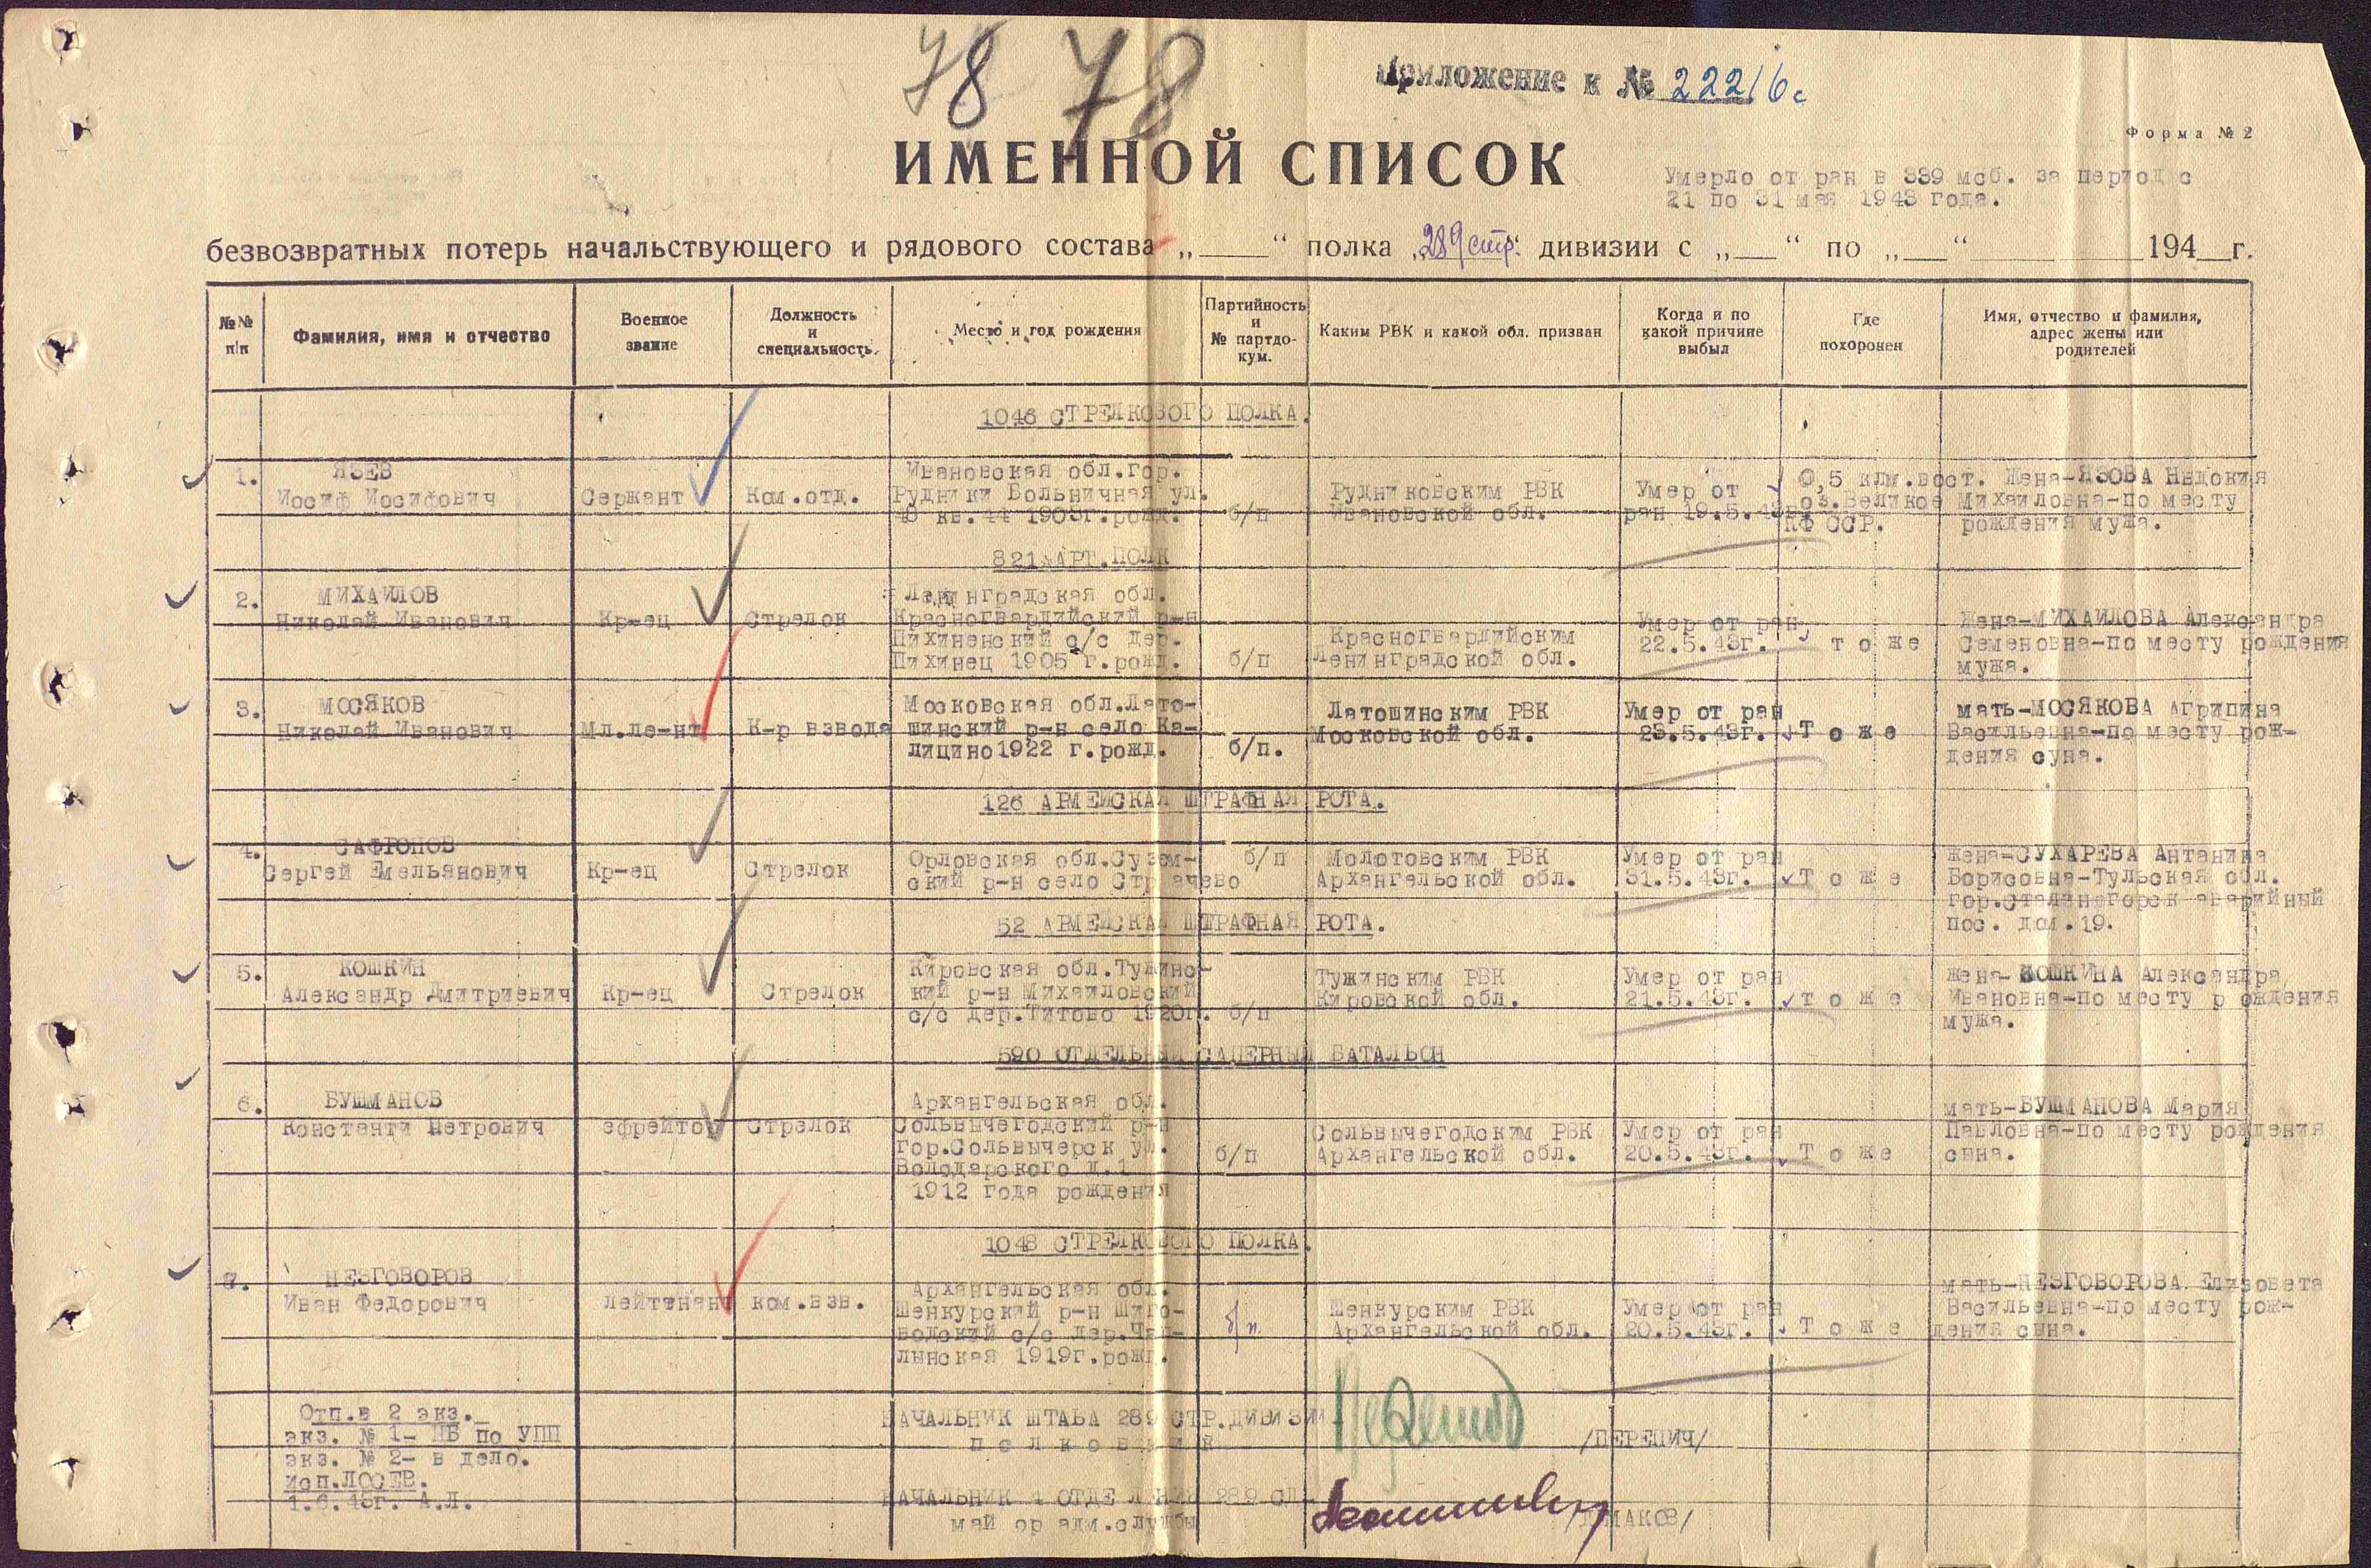 78 78
Приложение к № 22216с
Форма № 2
ИМЕННОЙ СПИСОК
Умерло от ран в 339 мсб. за период с
21 по 31 мая 1943 года.
безвозвратных потерь начальствующего и рядового состава „____“ полка „289 стр.“ дивизии с „___“ по „___“ ______ 194__г.
№№ п/п
Фамилия, имя и отчество
Военное звание
Должность и специальность.
Место и год рождения
Партийность и № партдо-кум.
Каким РВК и какой обл. призван
Когда и по какой причине выбыл
Где похоронен
Имя, отчество и фамилия, адрес жены или родителей
1046 СТРЕЛКОВОГО ПОЛКА.
1.
ЯЗЕВ
Иосиф Иосифович
Сержант
Ком.отд.
Ивановская обл.гор.
Рудники Больничная ул.
48 кв.44 1903г.рожд.
б/п
Рудниковским РВК
Ивановской обл.
Умер от
ран 19.5.43г.
0,5 клм.вост.
оз.Великое
КФ ССР.
Жена-ЯЗОВА Евдокия
Михаиловна-по месту
рождения мужа.
821 АРТ.ПОЛК
2.
МИХАИЛОВ
Николай Иванович
Кр-ец
Стрелок
Ленинградская обл.
Красногвардийский р-н
Пихиненский с/с дер.
Пихинец 1905 г.рожд.
б/п
Красногвардийским
Ленинградской обл.
Умер от ран
22.5.43г.
т о же
Жена-МИХАИЛОВА Александра
Семеновна-по месту рождения
мужа.
3.
МОСЯКОВ
Николай Иванович
Мл.ле-нт
К-р взвода
Московская обл.Лато-
шинский р-н село Ка-
лицино1922 г.рожд.
б/п.
Латошинским РВК
Московской обл.
Умер от ран
23.5.43г.
Т о же
мать-МОСЯКОВА Агрипина
Васильевна-по месту рож-
дения суна.
126 АРМЕЙСКАЯ ШТРАФНАЯ РОТА.
4.
САФРОНОВ
Сергей Емельянович
Кр-ец
Стрелок
Орловская обл.Сузем-
ский р-н село Страчево
б/п
Молотовским РВК
Архангельской обл.
Умер от ран
31.5.43г.
Т о же
Жена-СУХАРЕВА Антанина
Борисовна-Тульская обл.
гор.Сталиногорск аварийный
пос. дом.19.
52 АРМЕЙСКАЯ ШТРАФНАЯ РОТА.
5.
КОШКИН
Александр Дмитриевич
Кр-ец
Стрелок
Кировская обл.Тужинс-
кий р-н Михаиловский
с/с дер.Титово 1920г.
б/п
Тужинским РВК
Кировской обл.
Умер от ран
21.5.43г.
т о же
жена-КОШКИНА Александра
Ивановна-по месту рождения
мужа.
590 ОТДЕЛЬНЫЙ САПЕРНЫЙ БАТАЛЬОН
6.
БУШМАНОВ
Константи Петрович
ефрейтор
Стрелок
Архангельская обл.
Сольвычегодский р-н
гор.Сольвычерск ул.
Володарского д.1
1912 года рождения
б/п
Сольвычегодским РВК
Архангельской обл.
Умер от ран
20.5.43г.
Т о же
мать-БУШМАНОВА Мария
Павловна-по месту рождения
сына.
1048 СТРЕЛКОВОГО ПОЛКА.
7.
НЕЗГОВОРОВ
Иван Федорович
лейтенант
ком.взв.
Архангельская обл.
Шенкурский р-н Шиго-
водский с/с дер.Чап-
лынская 1919г.рожд.
б/п.
Шенкурским РВК
Архангельской обл.
Умер от ран
20.5.43г.
Т о же
мать-НЕЗГОВОРОВА Елизовета
Васильевна-по месту рож-
дения сына.
Отп.в 2 экз.
экз. № 1- ЦБ по УПП
экз. № 2- в дело.
исп.ЛОСЕВ.
1.6.43г. А.Л.
НАЧАЛЬНИК ШТАБА 289 СТР.ДИВИЗИИ
п о л к о в н и к
/ПЕРЕПИЧ/
НАЧАЛЬНИК 4 ОТДЕЛЕНИЯ 289 СД
майор адм.службы